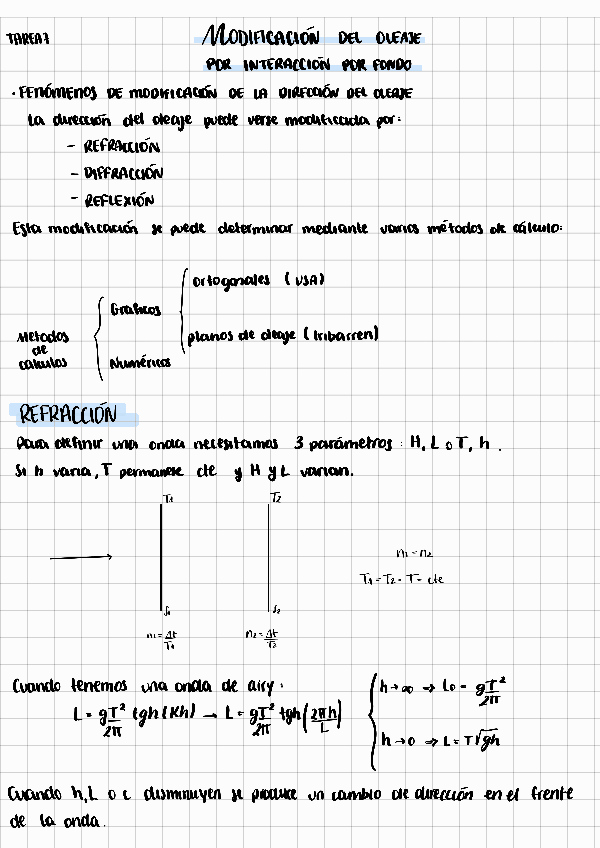 TAREA 7
MODIFICACIÓN DEL OLEAJE
POR INTERACCIÓN POR FONDO
· FENÓMENOS DE MODIFICACIÓN DE LA DIRECCIÓN DEL OLEAJE
La dirección del oleaje puede verse modificada por:
- REFRACCIÓN
- DIFFRACCIÓN
- REFLEXIÓN
Esta modificación se puede determinar mediante varios métodos de cálculo:
ortogonales (USA)
Gráficos
planos de oleaje (Iribarren)
Métodos
de
cálculos
Numéricos
REFRACCIÓN
Para definir una onda necesitamos 3 parámetros: H, L o T, h.
Si h varia, T permanece cte y H y L varian.
T1 T2
n1 = n2
T1 = T2 = T = cte
S1 S2
n1 = Δt/T1 n2 = Δt/T2
Cuando tenemos una onda de airy:
L = gT²/2π tgh (Kh) → L = gT²/2π tgh (2πh/L)
h→∞ ⇒ Lo = gT²/2π
h→0 ⇒ L = T√gh
Cuando h, L o c disminuyen se produce un cambio de dirección en el frente
de la onda.